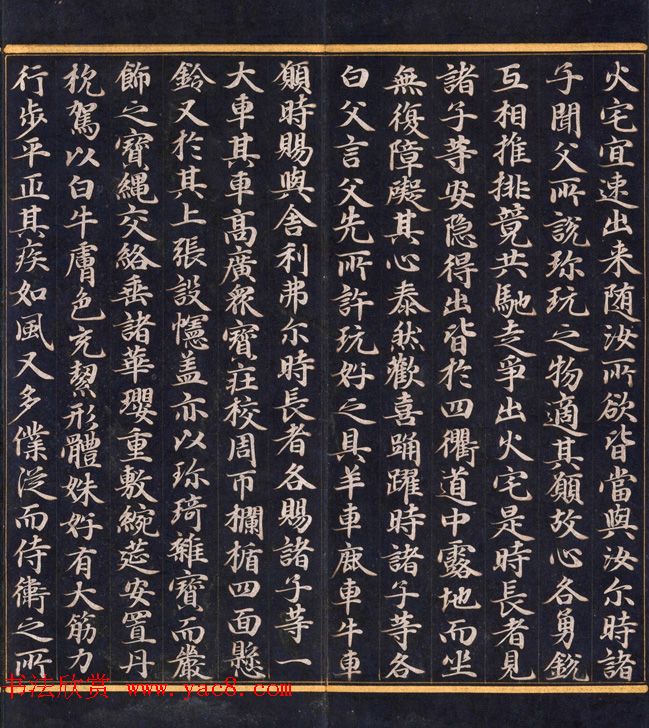 火宅宜速出来随汝所欲皆當與汝尒時諸
子聞父所說珎玩之物適其願故心各勇銳
互相推排競共馳走爭出火宅是時長者見
諸子等安隐得出皆於四衢道中露地而坐
無復障礙其心泰然歡喜踊躍時諸子等各
白父言父先所許玩好之具羊車鹿車牛車
願時賜與舍利弗尒時長者各賜諸子等一
大車其車髙廣衆寶莊校周帀欄楯四面懸
鈴又於其上張設幰盖亦以珎琦雜寶而嚴
飾之寶繩交絡垂諸華瓔重敷綩莚安置丹
枕駕以白牛膚色充潔形體姝好有大筋力
行步平正其疾如風又多僕從而侍衛之所
书法欣赏 www.yac8.com